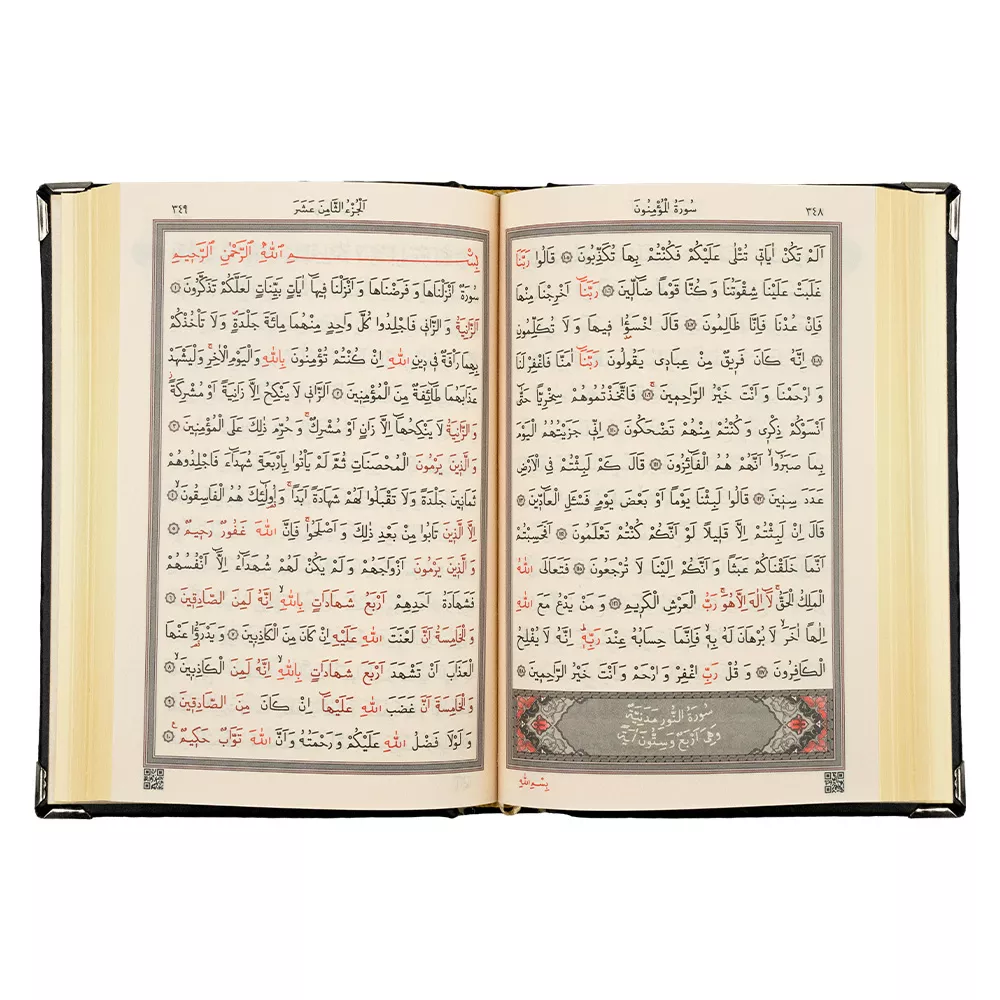 ٣٤٨
سُورَةُ الْمُؤْمِنُونَ
اَلَمْ تَكُنْ اٰيَاتٖى تُتْلٰى عَلَيْكُمْ فَكُنْتُمْ بِهَا تُكَذِّبُونَ ﴿١٠٥﴾ قَالُوا رَبَّنَا
غَلَبَتْ عَلَيْنَا شِقْوَتُنَا وَ كُنَّا قَوْمًا ضَٓالّٖينَ ﴿١٠٦﴾ رَبَّنَٓا اَخْرِجْنَا مِنْهَا
فَاِنْ عُدْنَا فَاِنَّا ظَالِمُونَ ﴿١٠٧﴾ قَالَ اخْسَؤُ۫ا فٖيهَا وَ لَا تُكَلِّمُونِ
﴿١٠٨﴾ اِنَّهُ كَانَ فَرٖيقٌ مِنْ عِبَادٖى يَقُولُونَ رَبَّنَٓا اٰمَنَّا فَاغْفِرْ لَنَا
وَ ارْحَمْنَا وَ اَنْتَ خَيْرُ الرَّاحِمٖينَ ﴿١٠٩﴾ فَاتَّخَذْتُمُوهُمْ سِخْرِيًّا حَتّٰٓى
اَنْسَوْكُمْ ذِكْرٖى وَ كُنْتُمْ مِنْهُمْ تَضْحَكُونَ ﴿١١٠﴾ اِنّٖى جَزَيْتُهُمُ الْيَوْمَ
بِمَا صَبَرُٓوا اَنَّهُمْ هُمُ الْفَٓائِزُونَ ﴿١١١﴾ قَالَ كَمْ لَبِثْتُمْ فِى الْاَرْضِ
عَدَدَ سِنٖينَ ﴿١١٢﴾ قَالُوا لَبِثْنَا يَوْمًا اَوْ بَعْضَ يَوْمٍ فَسْـَٔلِ الْعَٓادّٖينَ ﴿١١٣﴾
قَالَ اِنْ لَبِثْتُمْ اِلَّا قَلٖيلًا لَوْ اَنَّكُمْ كُنْتُمْ تَعْلَمُونَ ﴿١١٤﴾ اَفَحَسِبْتُمْ
اَنَّمَا خَلَقْنَاكُمْ عَبَثًا وَ اَنَّكُمْ اِلَيْنَا لَا تُرْجَعُونَ ﴿١١٥﴾ فَتَعَالَى اللّٰهُ
الْمَلِكُ الْحَقُّۚ لَٓا اِلٰهَ اِلَّا هُوَۚ رَبُّ الْعَرْشِ الْكَرٖيمِ ﴿١١٦﴾ وَ مَنْ يَدْعُ مَعَ اللّٰهِ
اِلٰهًا اٰخَرَۙ لَا بُرْهَانَ لَهُ بِهٖۙ فَاِنَّمَا حِسَابُهُ عِنْدَ رَبِّهٖؕ اِنَّهُ لَا يُفْلِحُ
الْكَافِرُونَ ﴿١١٧﴾ وَ قُلْ رَبِّ اغْفِرْ وَ ارْحَمْ وَ اَنْتَ خَيْرُ الرَّاحِمٖينَ ﴿١١٨﴾
سُورَةُ النُّورِ مَدَنِيَّةٌ
وَهِىَ اَرْبَعٌ وَ سِتُّونَ اٰيَةً
بِسْمِ اللّٰهِ
اَلْجُزْءُ الثَّامِنَ عَشَرَ
٣٤٩
بِسْمِ اللّٰهِ الرَّحْمٰنِ الرَّحٖيمِ
سُورَةٌ اَنْزَلْنَاهَا وَ فَرَضْنَاهَا وَ اَنْزَلْنَا فٖيهَٓا اٰيَاتٍ بَيِّنَاتٍ لَعَلَّكُمْ تَذَكَّرُونَ ﴿١﴾
اَلزَّانِيَةُ وَ الزَّانٖى فَاجْلِدُوا كُلَّ وَاحِدٍ مِنْهُمَا مِائَةَ جَلْدَةٍࣕ وَ لَا تَأْخُذْكُمْ
بِهِمَا رَأْفَةٌ فٖى دٖينِ اللّٰهِ اِنْ كُنْتُمْ تُؤْمِنُونَ بِاللّٰهِ وَ الْيَوْمِ الْاٰخِرِۚ وَ لْيَشْهَدْ
عَذَابَهُمَا طَٓائِفَةٌ مِنَ الْمُؤْمِنٖينَ ﴿٢﴾ اَلزَّانٖى لَا يَنْكِحُ اِلَّا زَانِيَةً اَوْ مُشْرِكَةًؗ
وَ الزَّانِيَةُ لَا يَنْكِحُهَٓا اِلَّا زَانٍ اَوْ مُشْرِكٌۚ وَ حُرِّمَ ذٰلِكَ عَلَى الْمُؤْمِنٖينَ ﴿٣﴾
وَ الَّذٖينَ يَرْمُونَ الْمُحْصَنَاتِ ثُمَّ لَمْ يَأْتُوا بِاَرْبَعَةِ شُهَدَٓاءَ فَاجْلِدُوهُمْ
ثَمَانٖينَ جَلْدَةً وَ لَا تَقْبَلُوا لَهُمْ شَهَادَةً اَبَدًاۚ وَ اُولٰٓئِكَ هُمُ الْفَاسِقُونَ ﴿٤﴾
اِلَّا الَّذٖينَ تَابُوا مِنْ بَعْدِ ذٰلِكَ وَ اَصْلَحُواۚ فَاِنَّ اللّٰهَ غَفُورٌ رَحٖيمٌ ﴿٥﴾
وَ الَّذٖينَ يَرْمُونَ اَزْوَاجَهُمْ وَ لَمْ يَكُنْ لَهُمْ شُهَدَٓاءُ اِلَّٓا اَنْفُسُهُمْ
فَشَهَادَةُ اَحَدِهِمْ اَرْبَعُ شَهَادَاتٍ بِاللّٰهِۙ اِنَّهُ لَمِنَ الصَّادِقٖينَ ﴿٦﴾
وَ الْخَامِسَةُ اَنَّ لَعْنَتَ اللّٰهِ عَلَيْهِ اِنْ كَانَ مِنَ الْكَاذِبٖينَ ﴿٧﴾ وَ يَدْرَؤُ۬ا عَنْهَا
الْعَذَابَ اَنْ تَشْهَدَ اَرْبَعَ شَهَادَاتٍ بِاللّٰهِۙ اِنَّهُ لَمِنَ الْكَاذِبٖينَۙ ﴿٨﴾
وَ الْخَامِسَةَ اَنَّ غَضَبَ اللّٰهِ عَلَيْهَٓا اِنْ كَانَ مِنَ الصَّادِقٖينَ ﴿٩﴾
وَ لَوْلَا فَضْلُ اللّٰهِ عَلَيْكُمْ وَ رَحْمَتُهُ وَ اَنَّ اللّٰهَ تَوَّابٌ حَكٖيمٌ ﴿١٠﴾